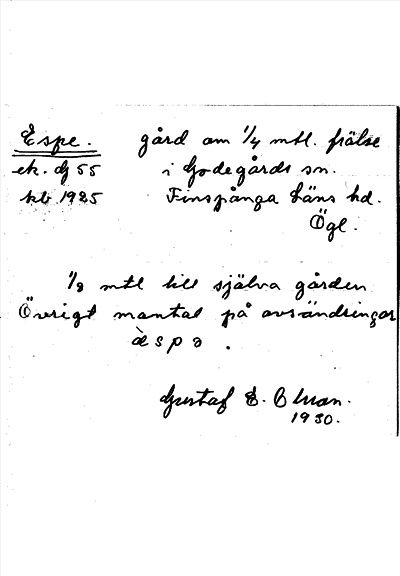 Espe. gård om 1/4 mtl. frälse
ek. dj 55 i Godegårds sn.
kb 1925 Finspånga läns hd.
Ögl.
1/8 mtl till själva gården
Överigt mantal på avsändringar
ὲspə.
Gustaf E. Olsson.
1930.